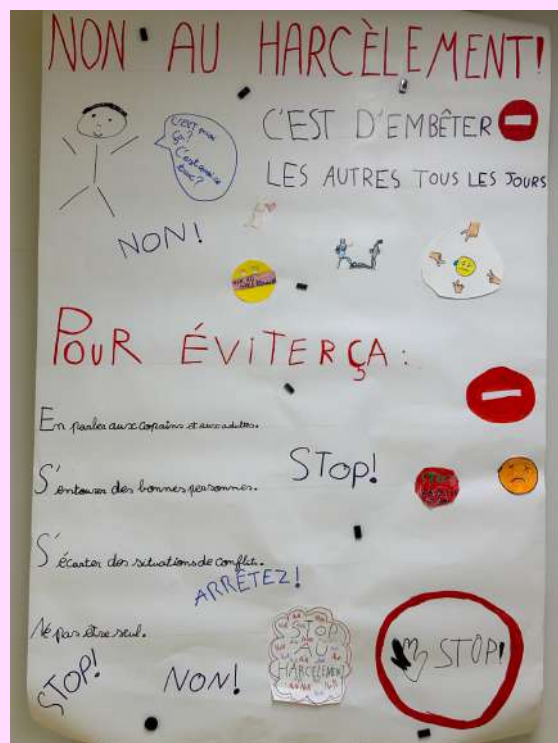 NON AU HARCÈLEMENT!
C'EST D'EMBÊTER
LES AUTRES TOUS LES JOURS
C'EST
ça?
C'est
truc?
NON!
POUR ÉVITER ÇA :
En parler aux copains et aux adultes.
S'entourer des bonnes personnes.
STOP!
S'écarter des situations de conflit.
ARRÊTEZ!
Ne pas être seul.
STOP!
NON!
STOP
AU
HARCÈLEMENT
STOP!